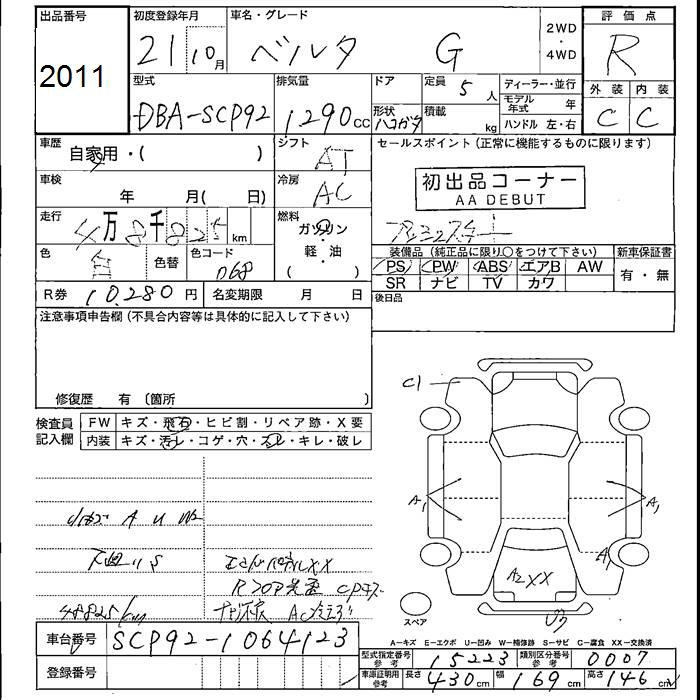 出品番号 2011
初度登録年月 21 10月
車名・グレード ベルタ G
2WD・4WD
評価点 R
型式 DBA-SCP92
排気量 1290cc
ドア
定員 5人
ディーラー・並行
モデル年式 年
ハンドル 左・右
形状 ハコガタ
積載 kg
外装 C
内装 C
車歴 自家用・( )
シフト AT
セールスポイント (正常に機能するものに限ります)
初出品コーナー
AA DEBUT
車検 年 月( 日)
冷房 AC
走行 4万8千825km
燃料 ガソリン・軽・油 ( )
色 白 色替 色コード 068
装備品 (純正品に限り〇をつけて下さい)
新車保証書 有・無
PS PW ABS エアB AW
SR ナビ TV カワ
R券 10,280円
名変期限 月 日
後日品
注意事項申告欄 (不具合内容等は具体的に記入して下さい)
修復歴 有 〔箇所 〕
検査員記入欄
FW キズ・飛石・ヒビ割・リペア跡・X要
内装 キズ・汚レ・コゲ・穴・スレ・キレ・破レ
C1
A1 A1
A
A2 XX
スペア
48825km
車台番号 SCP92-1064123
登録番号
A=キズ E=エクボ U=凹み W=補修跡 S=サビ C=腐食 XX=交換済
型式指定番号 参考 15223
類別区分番号 参考 0007
車庫証明用 参考 長さ 430cm 幅 169cm 高さ 146cm